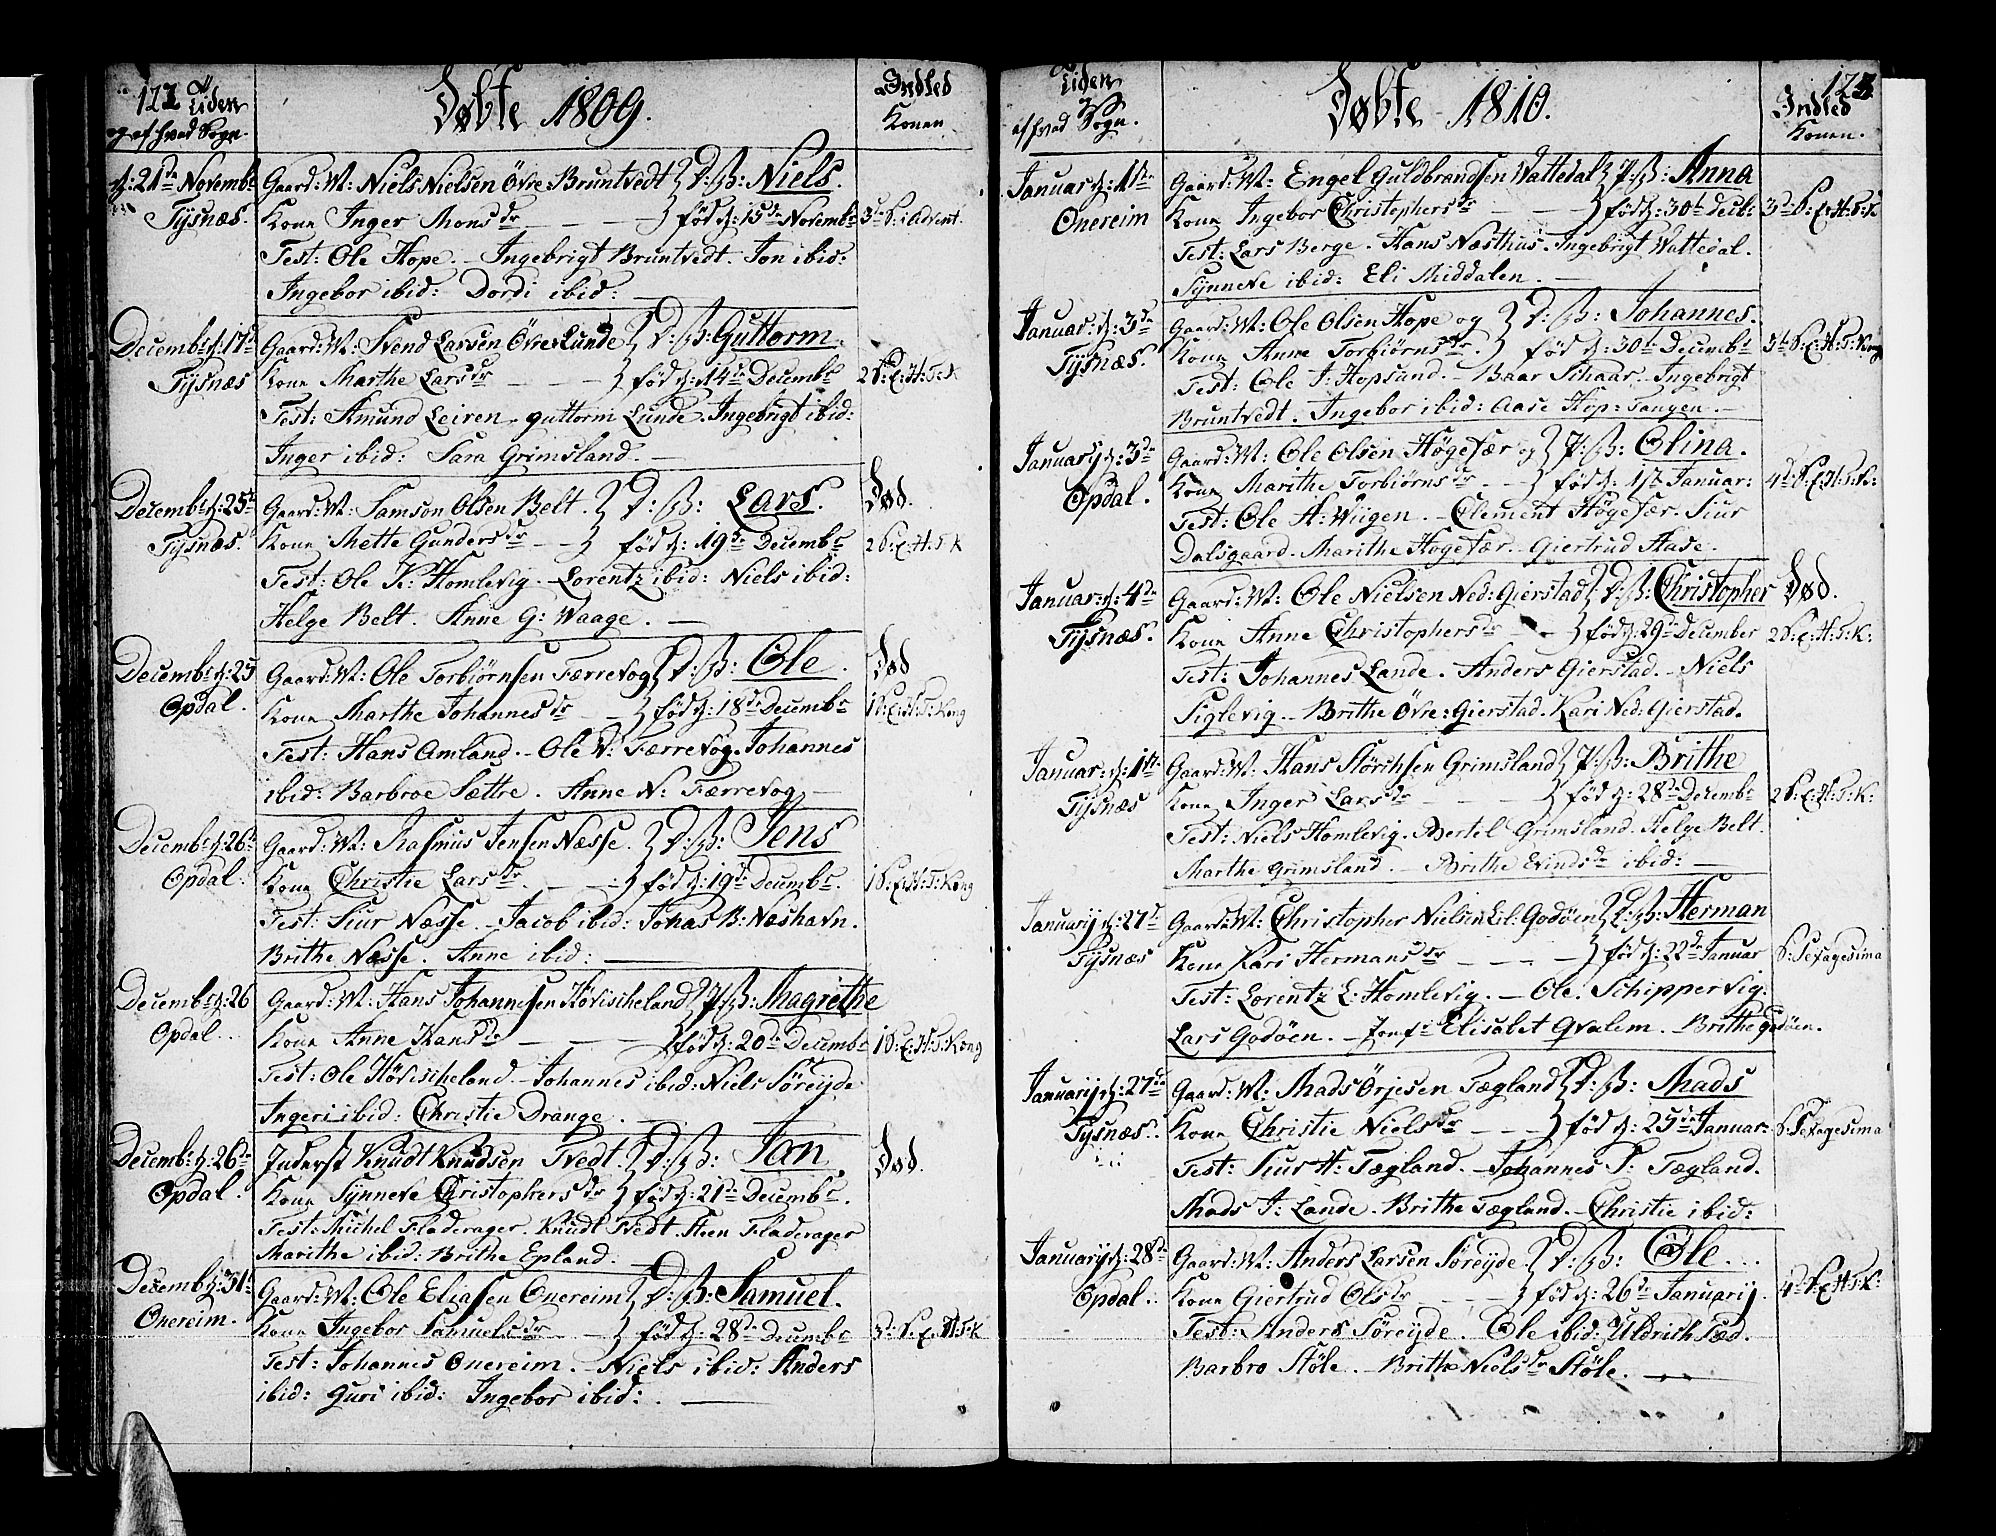 122
Tiden
og af hvad Sogn.
Døbte 1809.
Indled
Konen
d: 21de Novembr
Tÿsnæs.
Gaard: M: Niels Nielsen Övre Bruntvedt D: B: Niels.
Kone Inger Mons dr fød d: 15de Novembr
3die S: i Advent.
Test: Ole Hope. Ingebrigt Bruntvedt. Jon ibid:
Ingebor ibid: Dordi ibid:
Decembr d: 17de
Tÿsnæs
Gaard: M: Svend Larsen Övre Lunde D: B: Guttorm.
Kone Marthe Lars dr fød d: 14de Decembr
2 S: E: H: 3 K
Test: Amund Leiren. Guttorm Lunde. Ingebrigt ibid:
Inger ibid: Sara Grimsland.
Decembr d: 25de
Tÿsnæs.
Gaard: M: Samson Olsen Belt. D: B: Lars.
Død.
Kone Mette Gunders dr fød d: 19de Decembr
2 S: E: H: 3 K
Test: Ole K: Homlevig. Lorentz ibid: Niels ibid:
Helge Belt. Anne G: Waage.
Decembr d: 25
Opdal.
Gaard: M: Ole Torbiørnsen Færrevog D: B: Ole.
Død
Kone Marthe Johannes dr fød d: 18de Decembr
1 S: E: H: 3: Kong
Test: Hans Amland. Ole V: Færrevog. Johannes
ibid: Barbroe Sættre. Anne N: Færrevog
Decembr d: 26de
Opdal.
Gaard: M: Rasmus Jensen Næsse. D: B: Jens
Kone Christie Lars dr. fød d: 19de Decembr.
1 S: E: H: 3: Kong
Test: Siur Næsse. Jacob ibid: Jonas B: Næshavn.
Brithe Næsse. Anne ibid:
Decembr d: 26
Opdal.
Gaard: M: Hans Johannesen Hövischeland P: B: Magrethe
Kone Anne Hans dr fød d: 20de Decembr
1 S: E: H: 3: Kong
Test: Ole Hövischeland. Johannes ibid: Niels Söreÿde
Ingeri ibid: Christie Drange.
Decembr d: 26de
Opdal.
Inderst Knudt Knudsen Tvedt. D: B: Jon
Død.
Kone Sÿnneve Christophers dr fød d: 21de Decembr.
Test: Michel Fladerager. Knudt Tvedt. Steen Fladerager
Marithe ibid: Brithe Epland.
Decemb d: 31te
Onereim.
Gaard: M: Ole Eliasen Onereim D: B: Samuel.
Kone Ingebor Samuels dr fød d: 28de Decembr
3: S: E: H: 3: K
Test: Johannes Onereim. Niels ibid: Anders
ibid: Guri ibid: Ingebor ibid:
Tiden
af hvad Sogn.
Døbte 1810.
123
Indled
Konen.
Januar d: 1ste
Onereim
Gaard: M: Engel Guldbrandsen Wattedal P: B: Anna
Kone Ingebor Christophers dr fød d: 30te Decb:
3de S: E: H: 3: K
Test: Lars Berge. Hans Næsthus. Ingebrigt Wattedal.
Sÿnneve ibid: Eli Middalen.
Januar: d: 3de
Tÿsnæs.
Gaard: M: Ole Olsen Hope og D: B: Johannes.
Kone Anne Torbiørns dr. fød d: 30te Decembr
3de S: E: H: 3: Kong
Test: Ole J: Hopsund. Baar Schaar. Ingebrigt
Bruntvedt. Ingebor ibid: Aase Hop: Tangen.
Januarij d: 3de
Opdal.
Gaard: M: Ole Olsen Högefær og P: B: Olina.
Kone Marithe Torbiörns dr. fød d: 1ste Januar:
4de S: E: H: 3: K:
Test: Ole A: Wiigen. Clement Högefær. Siur
Dalsgaard. Marithe Högefær. Giertrud Aase.
Januar: d: 4de
Tÿsnæs.
Gaard: M: Ole Nielsen Ned: Gierstad D: B: Christopher
Død.
Kone Anne Christophers dr fød d: 29de December
2 S: E: H: 3: K:
Test: Johannes Lande. Anders Gierstad. Niels
Siglevig. Brithe Övre: Gierstad. Kari Ned: Gierstad.
Januar: d: 1ste
Tÿsnæs
Gaard: M: Hans Störchsen Grimsland P: B: Brithe
Kone Inger Lars dr fød d: 28de Decembr
2 S: E: H: 3: K:
Test: Niels Homlevig. Bertel Grimsland. Helge Belt.
Marthe Grimsland. Brithe Evinds dr ibid:
Januarij d: 27de
Tÿsnæs
Gaard: M: Christopher Nielsen Lil: Godöen D: B: Herman
Kone Kari Hermans dr fød d: 22de Januar
S: Sexagesima
Test: Lorentz L: Homlevig. Ole. Schippervig.
Lars Godöen. Jomfr Elisabet Qvalem. Brithe Godöen.
Januarij d: 27de
Tÿsnæs.
Gaard: M: Mads Örjesen Tægland D: B: Mads
Kone Christie Niels dr fød d: 25de Januar:
S: Sexagesima
Test: Siur H: Tægland. Johannes T: Tægland.
Mads J: Lande. Brithe Tægland. Christie ibid:
Januarij d: 28de
Opdal.
Gaard: M: Anders Larsen Söreÿde D: B: Ole.
Kone Giertrud Ols dr fød d: 26te Januarij.
4de S: E: H: 3: K:
Test: Anders Söreÿde. Ole ibid: Uldrich Sæd.
Barbro Stöle. Brithe Niels dr Stöle.